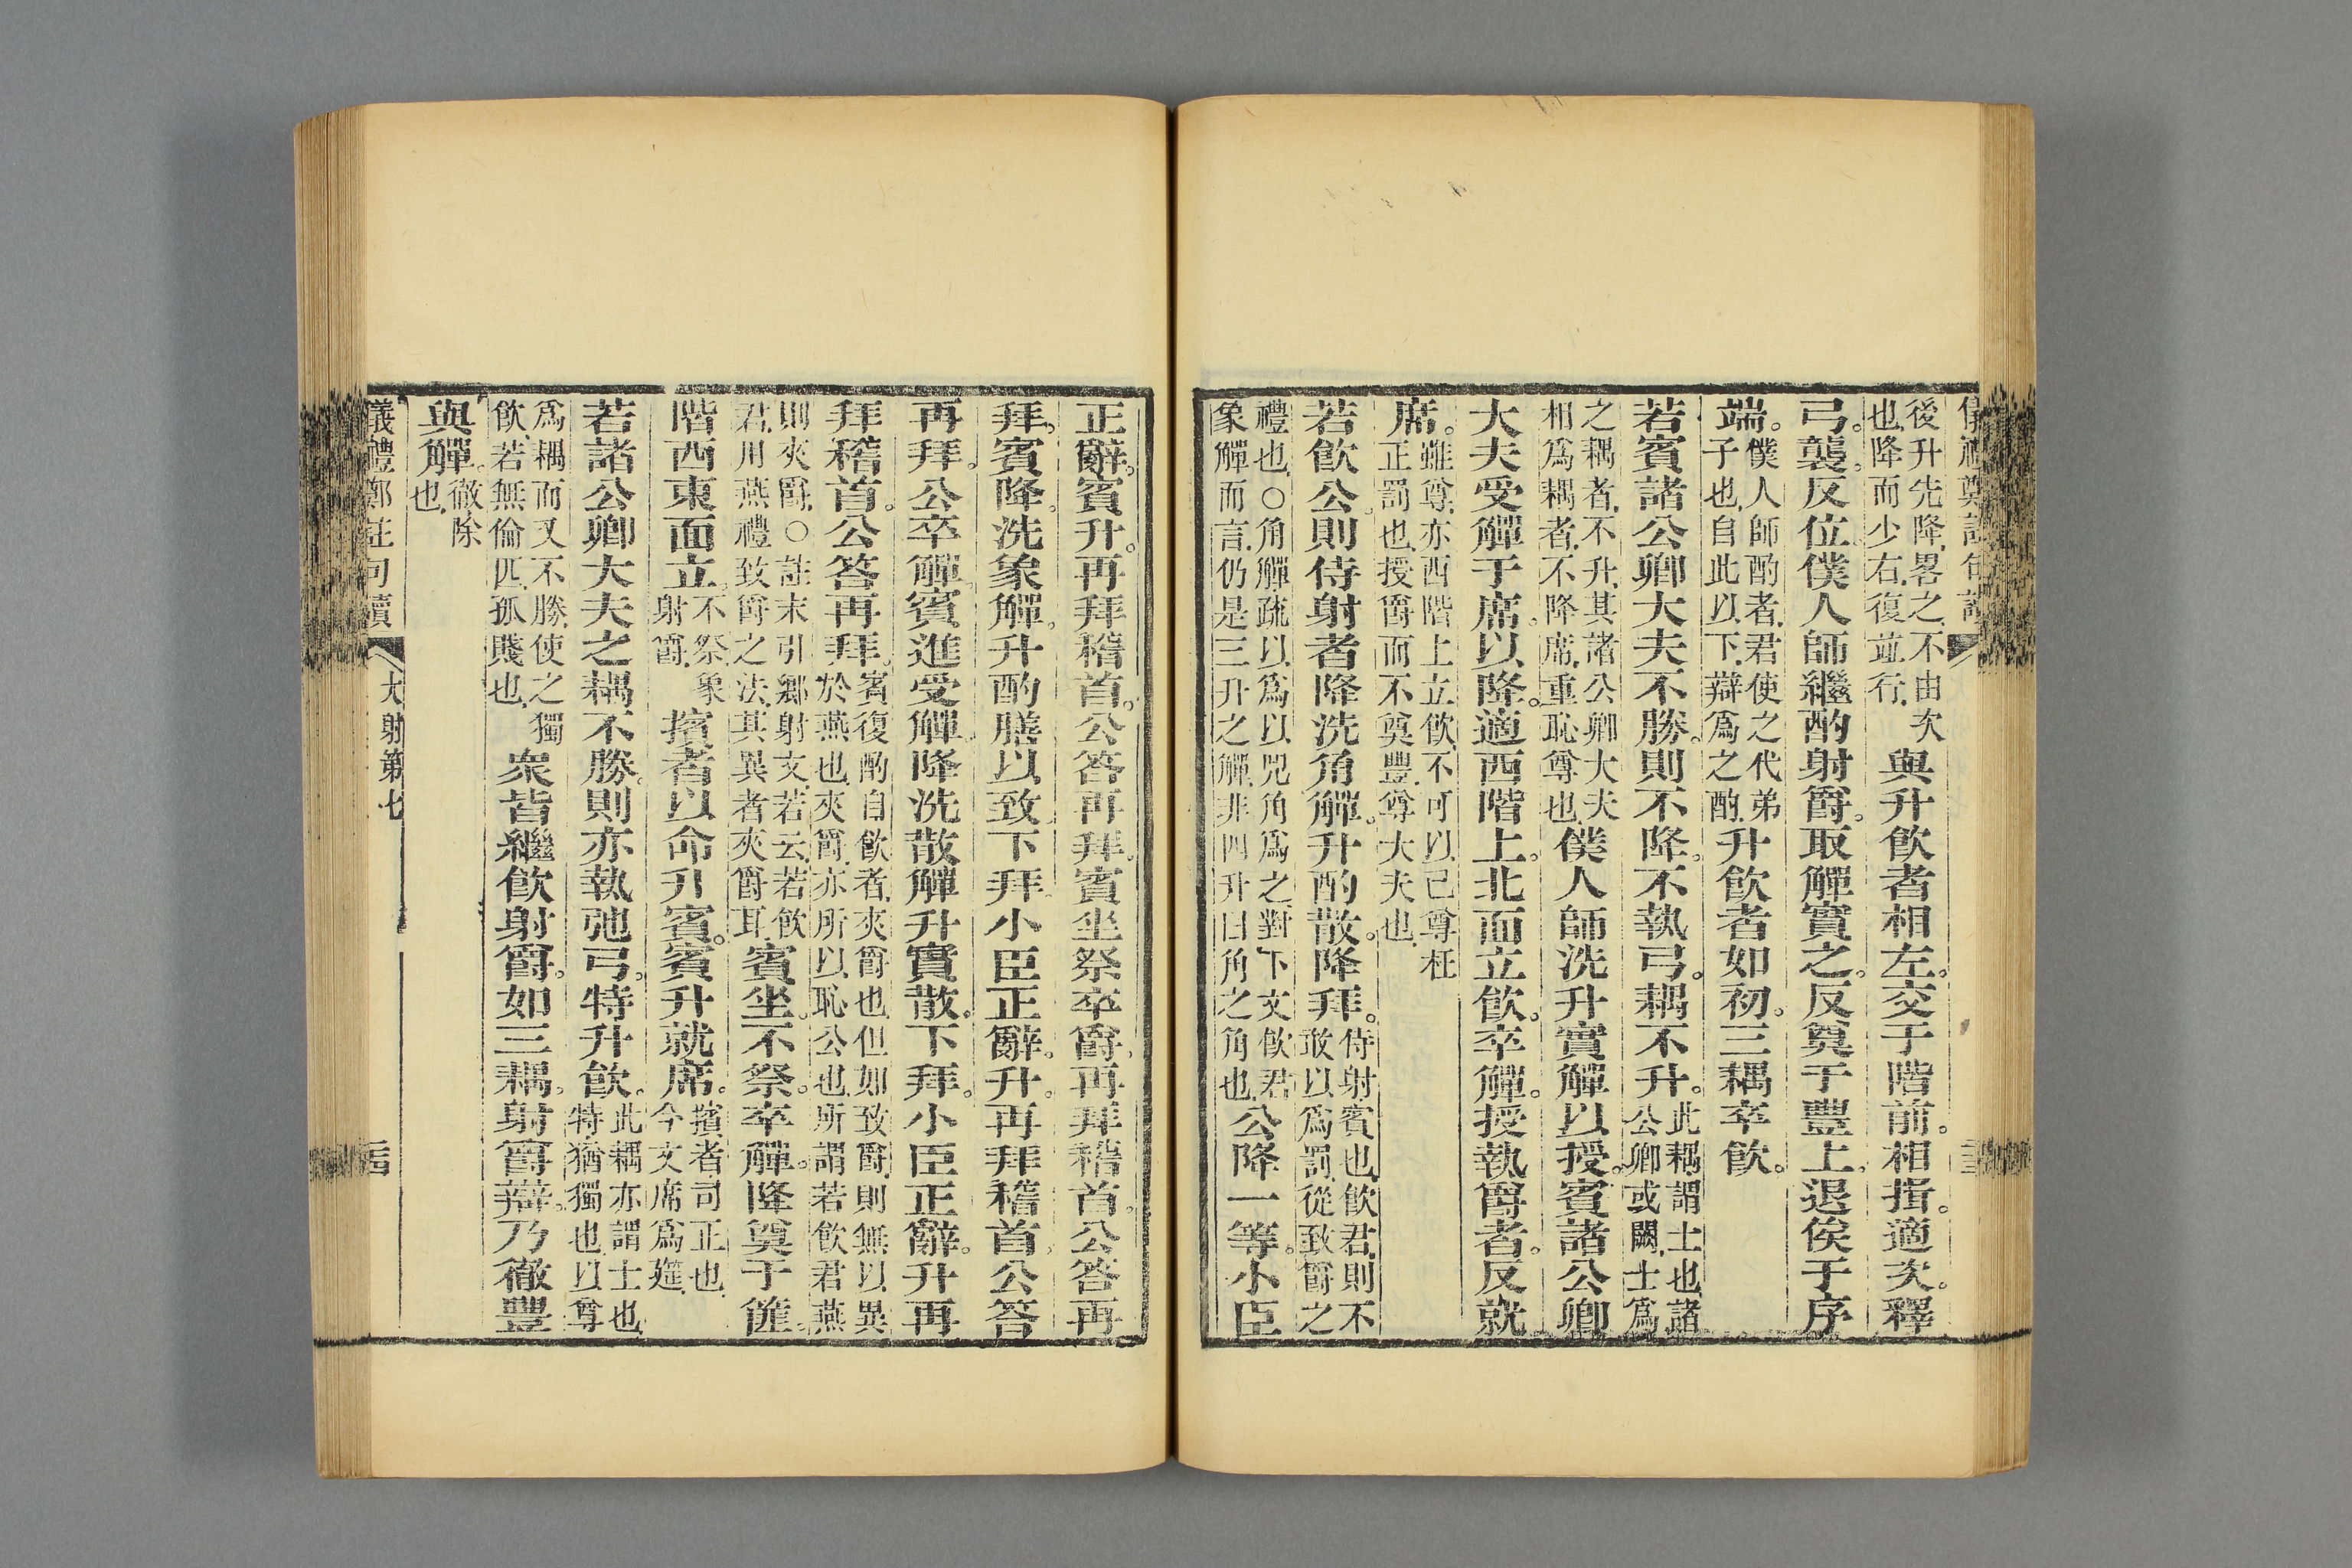 後升先降畧之不由次也降而少右復並行與升飲者相左。交于階前。相揖。適次。釋
弓。襲。反位。僕人師繼酌射爵。取觶實之。反奠于豐上。退俟于序
端。僕人師酌者君使之代弟子也自此以下辯爲之酌升飲者如初。三耦卒飲。
若賓諸公卿大夫不勝。則不降。不執弓。耦不升。此耦謂士也諸公卿或闕士爲
之耦者不升其諸公卿大夫相爲耦者不降席重恥尊也僕人師洗升實觶以授。賓諸公卿
大夫受觶于席。以降。適西階上。北面立飲。卒觶。授執爵者。反就
席。雖尊亦西階上立飲不可以己尊枉正罰也授爵而不奠豐尊大夫也
若飲公。則侍射者降洗角觶。升酌散。降拜。侍射賓也飲君則不敢以爲罰從致爵之
禮也○角觶疏以爲以兕角爲之對下文飲君象觶而言仍是三升之觶非四升曰角之角也公降一等。小臣
正辭。賓升。再拜稽首。公答再拜。賓坐祭卒爵。再拜稽首。公答再
拜。賓降。洗象觶。升酌膳以致。下拜。小臣正辭。升。再拜稽首。公答
再拜。公卒觶。賓進受觶。降洗散觶。升實散。下拜。小臣正辭。升再
拜稽首。公答再拜。賓復酌自飲者夾爵也但如致爵則無以異於燕也夾爵亦所以恥公也所謂若飲君燕
則夾爵○註末引鄉射文若云若飲君用燕禮致爵之法其異者夾爵耳賓坐。不祭。卒觶。降奠于篚。
階西東面立。不祭象射爵擯者以命升賓。賓升就席。擯者司正也今文席爲筵
若諸公卿大夫之耦不勝。則亦執弛弓。特升飲。此耦亦謂士也特猶獨也以尊
爲耦而又不勝使之獨飲若無倫匹孤賤也衆皆繼飲射爵。如三耦。射爵辯。乃徹豐
與觶。徹除也
儀禮鄭註句讀 大射第七